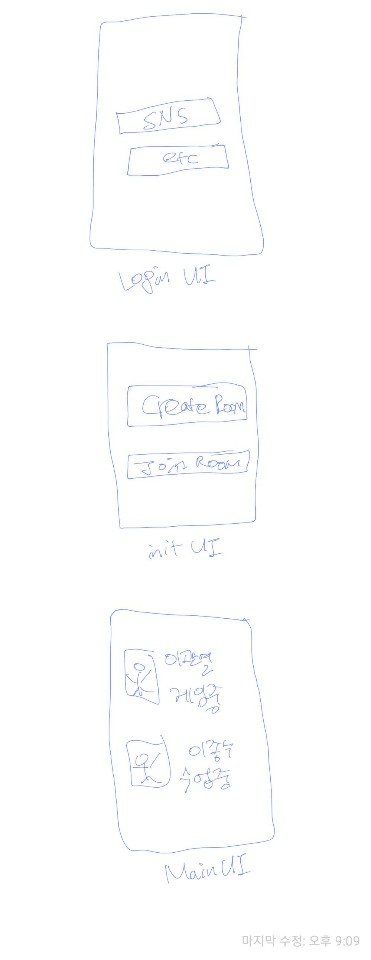 SNS
etc
Login UI
Create Room
Join Room
init UI
이관열
게임중
이종수
수업중
Main UI
마지막 수정: 오후 9:09